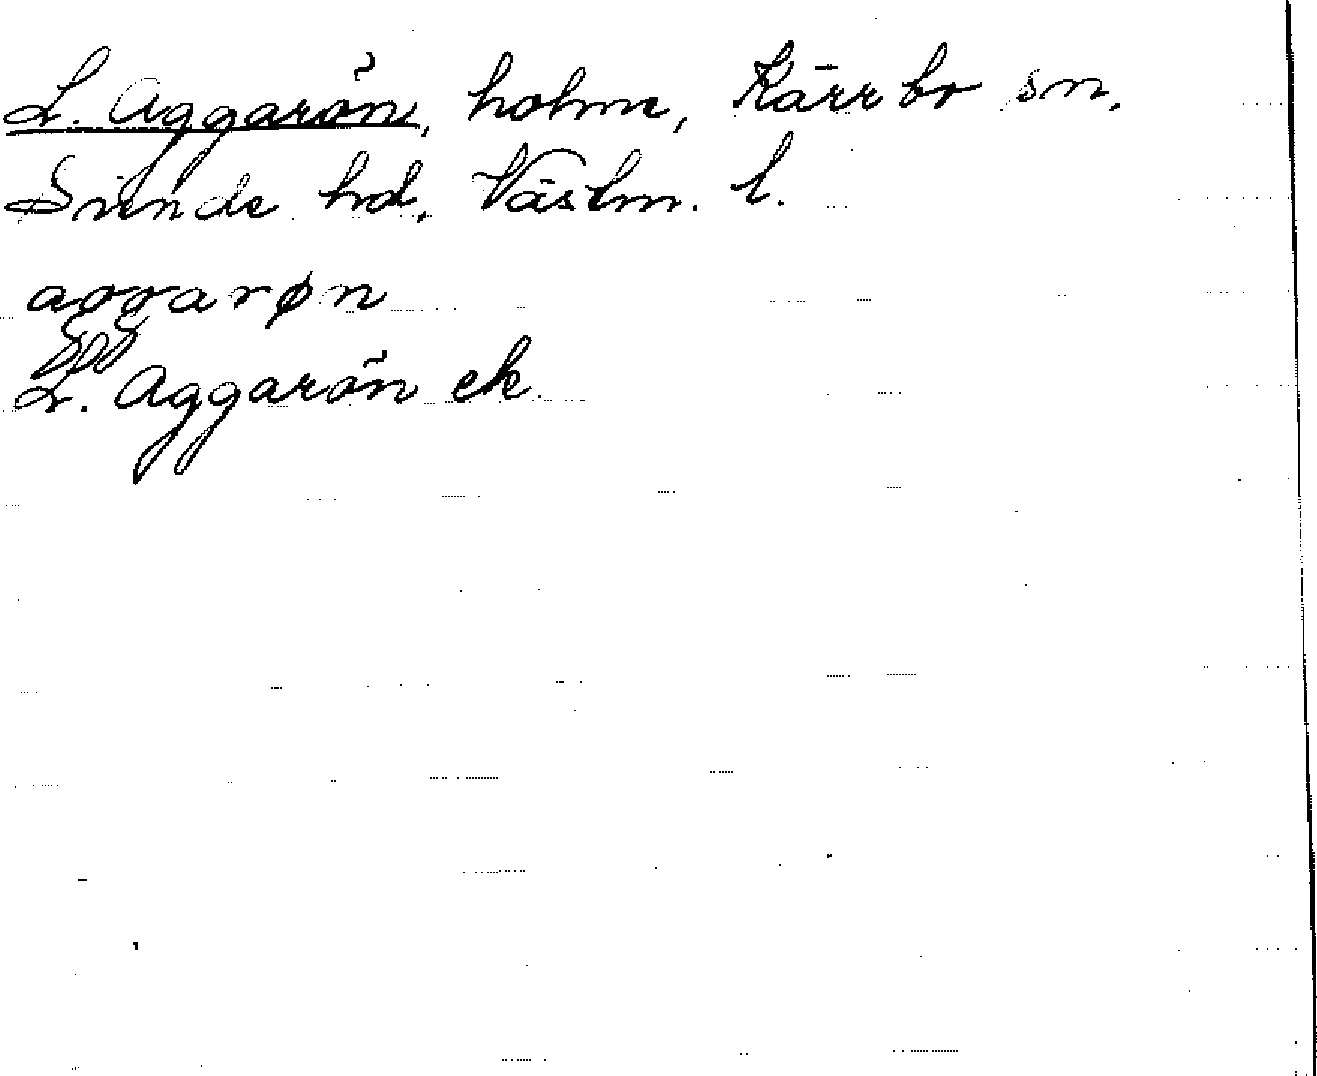 L. Aggarön, holme, Kärrbo sn,
Siende hd, Västm. l.
aggarøn
L. Aggarön ek.